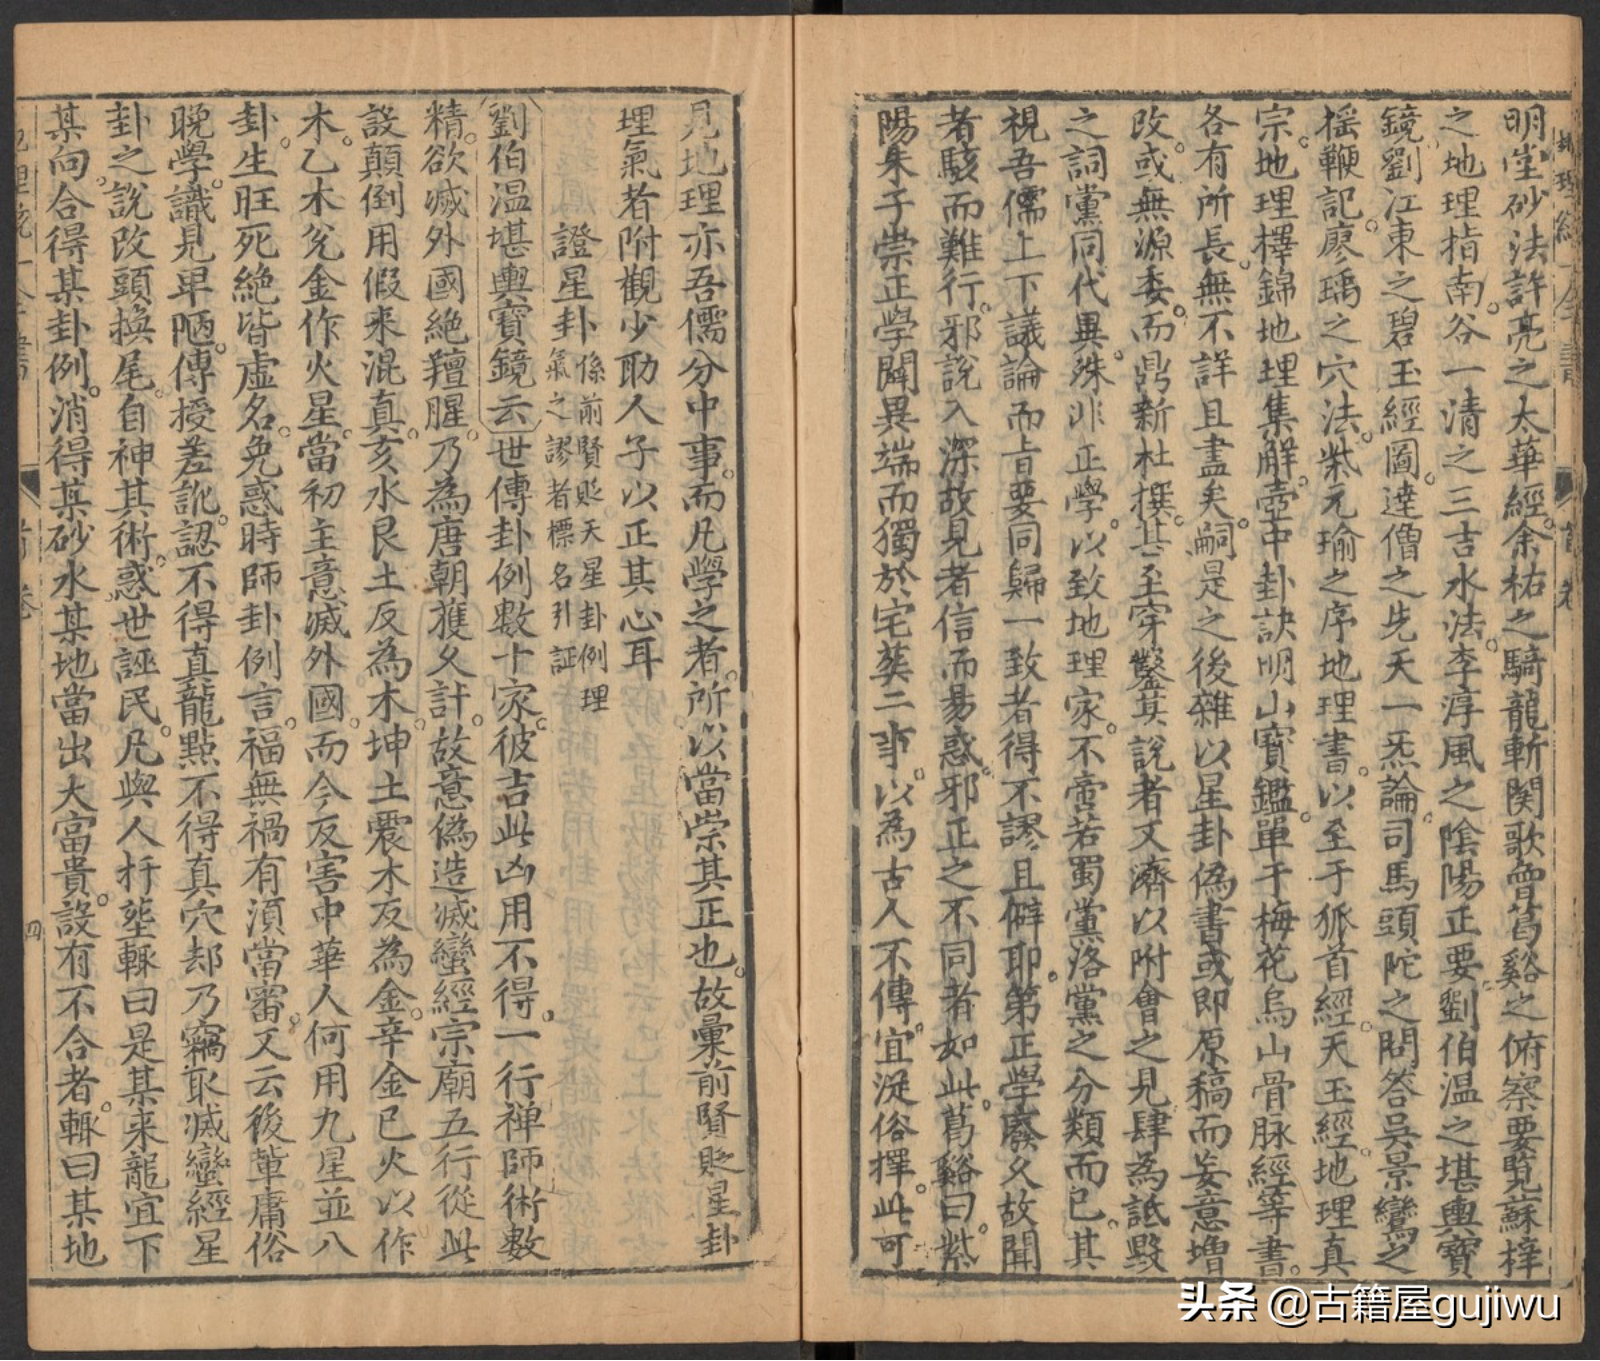 明堂砂法許亮之太華經余祐之騎龍斬関歌曾葛谿之俯察要覧蘇梓
之地理指南谷一清之三吉水法李淳風之陰陽正要劉伯温之堪輿寶
鏡劉江東之碧玉經圖達僧之先天一炁論司馬頭陀之問答吳景鸞之
揺鞭記廖瑀之穴法紫元瑜之序地理書以至于狐首經天玉經地理真
宗地理擇錦地理集解壺中卦訣明山寶鑑單于梅花烏山骨脉經等書
各有所長無不詳且盡矣嗣是之後雜以星卦偽書或即原稿而妄意增
改或無源委而鼎新杜撰甚至穿鑿其說者又濟以附會之見肆為詆毀
之詞黨同代異殊非正學以致地理家不啻若蜀黨洛黨之分類而已其
視吾儒上下議論而旨要同歸一致者得不謬且僻耶第正學廢久故聞
者駭而難行邪說入深故見者信而易惑邪正之不同者如此葛谿曰紫
陽朱子崇正學闢異端而獨於宅葬二事以為古人不傳宜從俗擇此可
見地理亦吾儒分中事而凡學之者所以當崇其正也故彙前賢貶星卦
理氣者附觀少助人子以正其心耳
證星卦 係前賢貶天星卦例理
氣之謬者標名引証
劉伯温堪輿寶鏡云世傳卦例數十家彼吉此凶用不得一行禅師術數
精欲滅外國絶羶腥乃為唐朝獲久計故意偽造滅蠻經宗廟五行從此
設顛倒用假来混真亥水艮土反為木坤土震木反為金辛金巳火以作
木乙木兊金作火星當初主意滅外國而今反害中華人何用九星並八
卦生旺死絶皆虛名免惑時師卦例言福無禍有湏當審又云後輩庸俗
晚學識見卑陋傳授差訛認不得真龍點不得真穴却乃竊取滅蠻經星
卦之說改頭換尾自神其術惑世誣民凡與人扦塟輙曰是某来龍宜下
某向合得某卦例消得某砂水某地當出大富貴設有不合者輙曰某地
首卷
四
头条 @古籍屋gujiwu